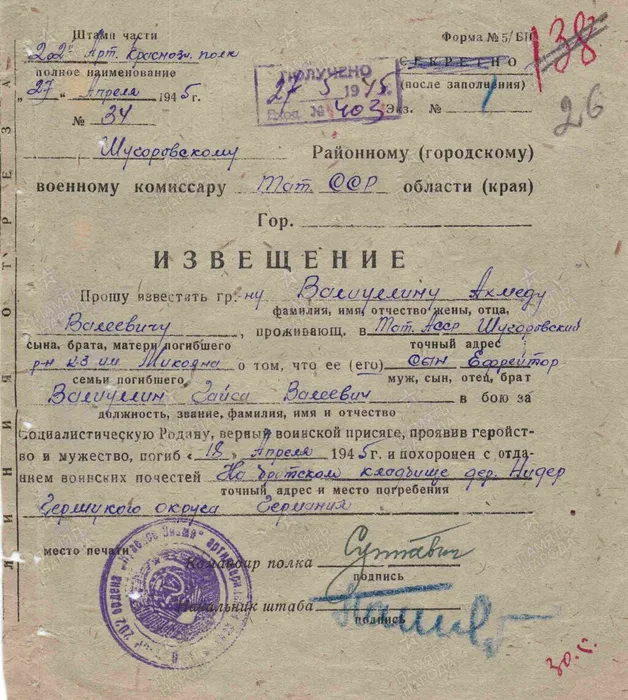 Штамп части Форма №5/БП
202 Арт. Краснозн. полк СЕКРЕТНО 138
полное наименование ПОЛУЧЕНО (после заполнения)
„27“ Апреля 1945г. 27 5 1945г. Экз. № 1
№ 34 Вход. № 403 26
Районному (городскому)
военному комиссару Тат. ССР области (края)
Гор.
ИЗВЕЩЕНИЕ
Прошу известать гр-ну Валиуллину Ахмеду
фамилия, имя, отчество жены, отца,
Валеевичу, проживающ. в Тат. АССР
сына, брата, матери погибшего точный адрес
р-н к-з им Микояна о том, что ее (его) сын Ефрейтор
семьи погибшего муж, сын, отец, брат
Валиуллин Гайса Валеевич в бою за
должность, звание, фамилия, имя и отчество
Социалистическую Родину, верный воинской присяге, проявив геройст-
во и мужество, погиб «18» Апреля 1945г и похоронен с отда-
нием воинских почестей На братском кладбище дер. Нидер
точный адрес и место погребения
округа Германия
место печати
Командир полка
подпись
Начальник штаба
подпись
30.5.
ЛИНИЯ ОТРЕЗА
202 ордена „Красное Знамя“